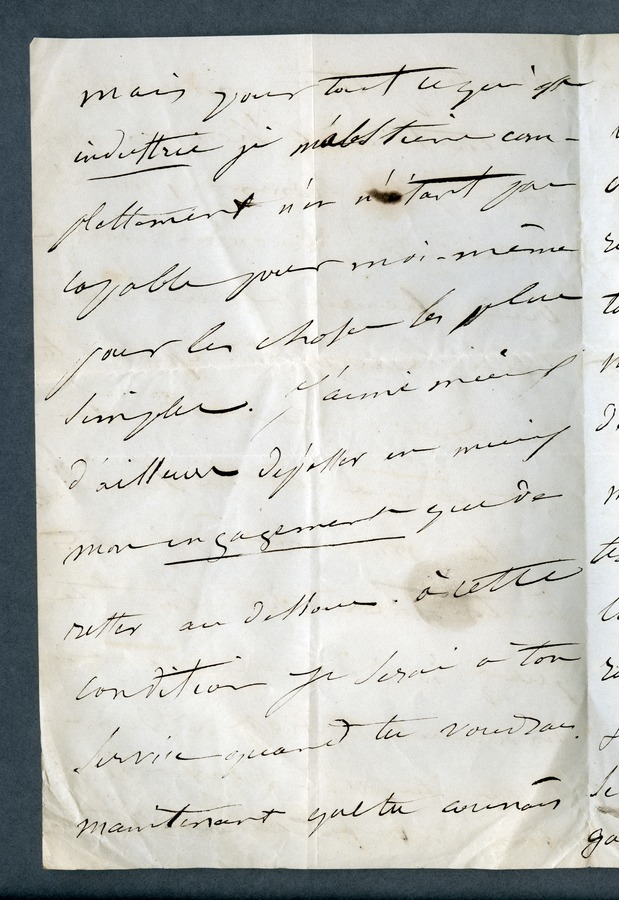 mais pour tout ce qui est
industrie je m'abstiens com-
plettement n'en n'étant pas
capable pour moi-même
pour les choses les plus
simples. J'aime mieux
d'ailleurs dépasser en mieux
mon engagement que de
rester au dessous. à cette
condition je serai à ton
service quand tu voudras.
maintenant que tu connais